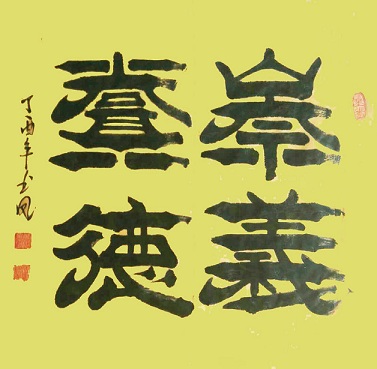 崇義
養德
丁酉年